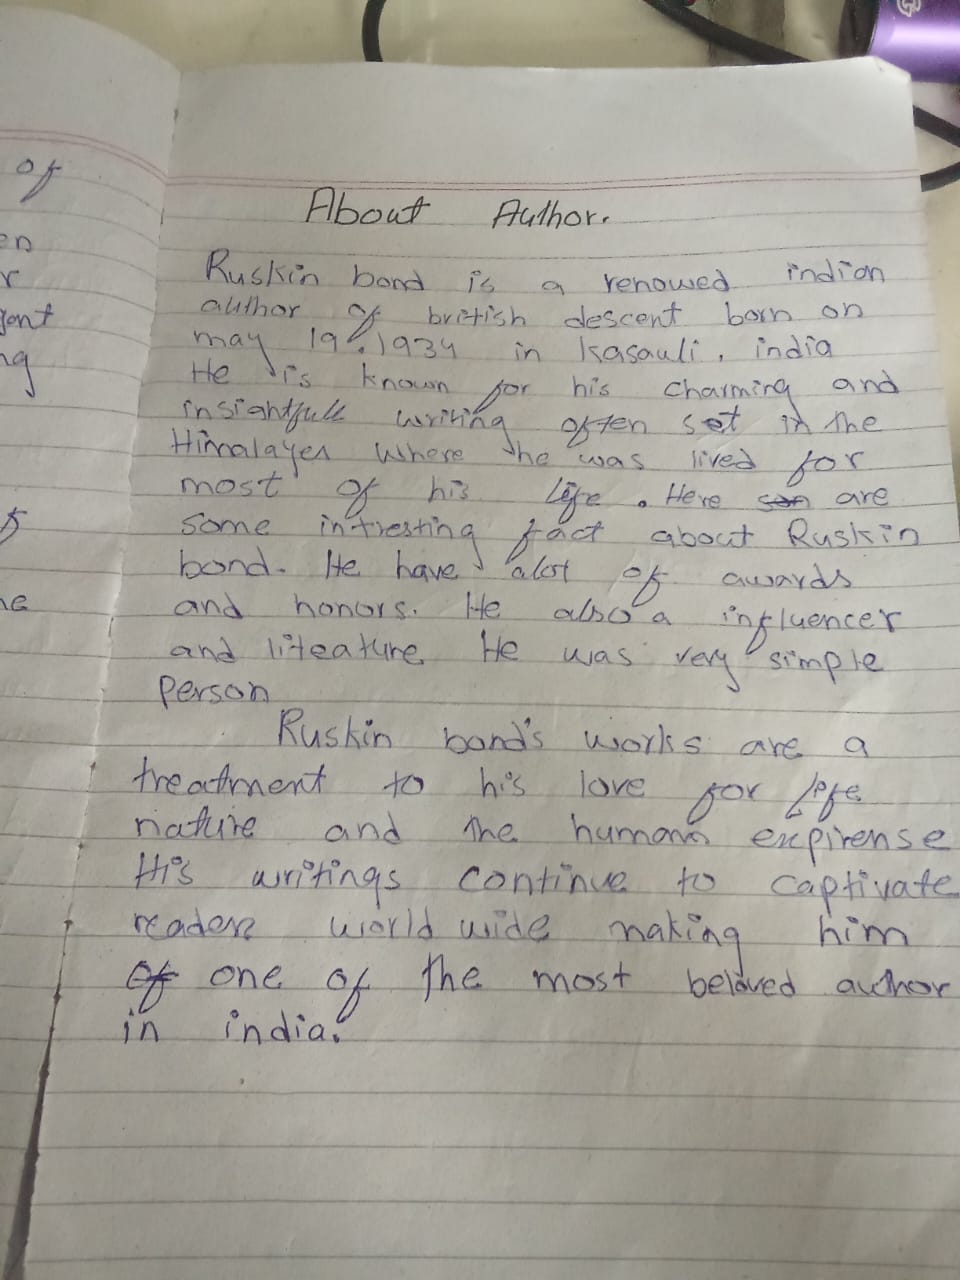 of
en
r
gent
ng
he
About Author.
Ruskin bond is a renowed indian
author of british descent born on
may 19, 1934 in Kasauli, india
He is known for his charming and
insightfull writing often set in the
Himalayes where he was lived for
most of his life. Here are
some intresting fact about Ruskin
bond. He have alot of awards
and honors. He also a influencer
and liteature He was very simple
person
Ruskin bond's works are a
treatment to his love for life
nature and the human expirense
His writings continue to captivate
readers world wide making him
one of the most beloved author
in india.